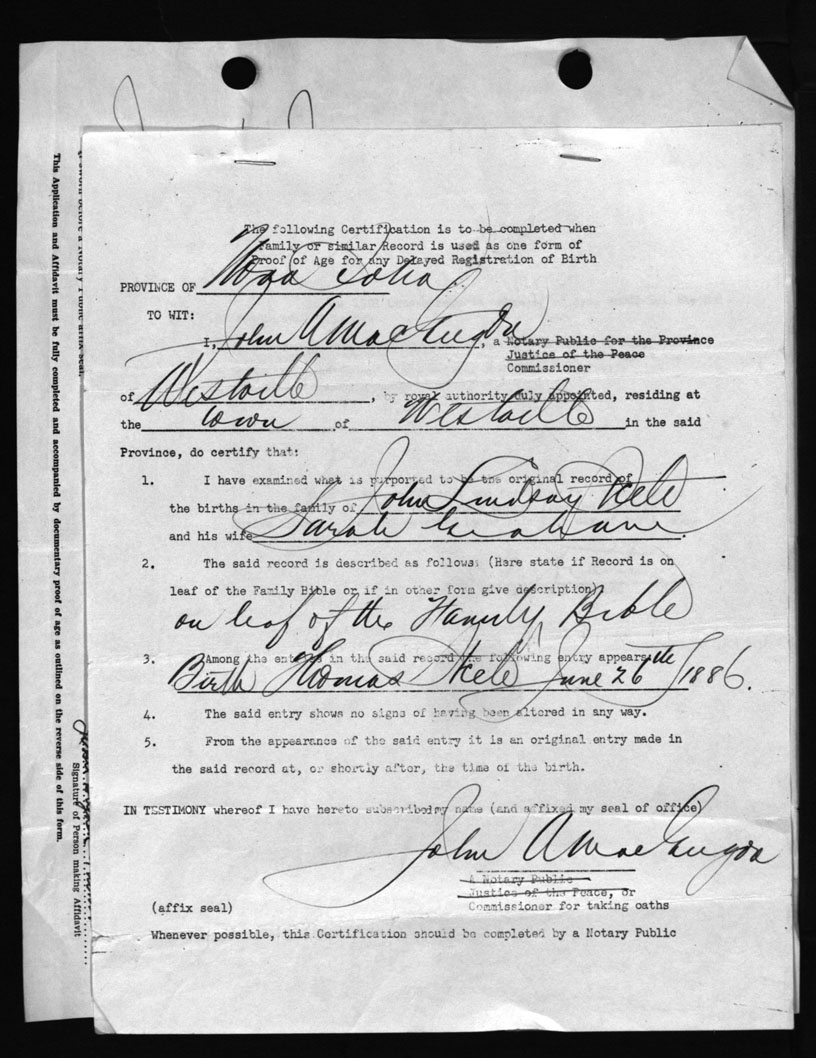 The following Certification is to be completed when
Family or similar Record is used as one form of
Proof of Age for any Delayed Registration of Birth
PROVINCE OF Nova Scotia
TO WIT:
I, John A Mac, a Notary Public for the Province
Justice of the Peace
Commissioner
of Westville, by royal authority duly appointed, residing at
the town of Westville in the said
Province, do certify that:
1. I have examined what is purported to be the original record of
the births in the family of John Lindsay
and his wife Sarah
2. The said record is described as follows: (Here state if Record is on
leaf of the Family Bible or if in other form give description)
on leaf of the Family Bible
3. Among the entries in the said record the following entry appears:
Birth Thomas June 26th 1886.
4. The said entry shows no signs of having been altered in any way.
5. From the appearance of the said entry it is an original entry made in
the said record at, or shortly after, the time of the birth.
IN TESTIMONY whereof I have hereto subscribed my name (and affixed my seal of office)
John A Mac
A Notary Public
Justice of the Peace, or
(affix seal) Commissioner for taking oaths
Whenever possible, this Certification should be completed by a Notary Public
This Application and Affidavit must be fully completed and accompanied by documentary proof of age as outlined on the reverse side of this form.
Signature of Person making Affidavit